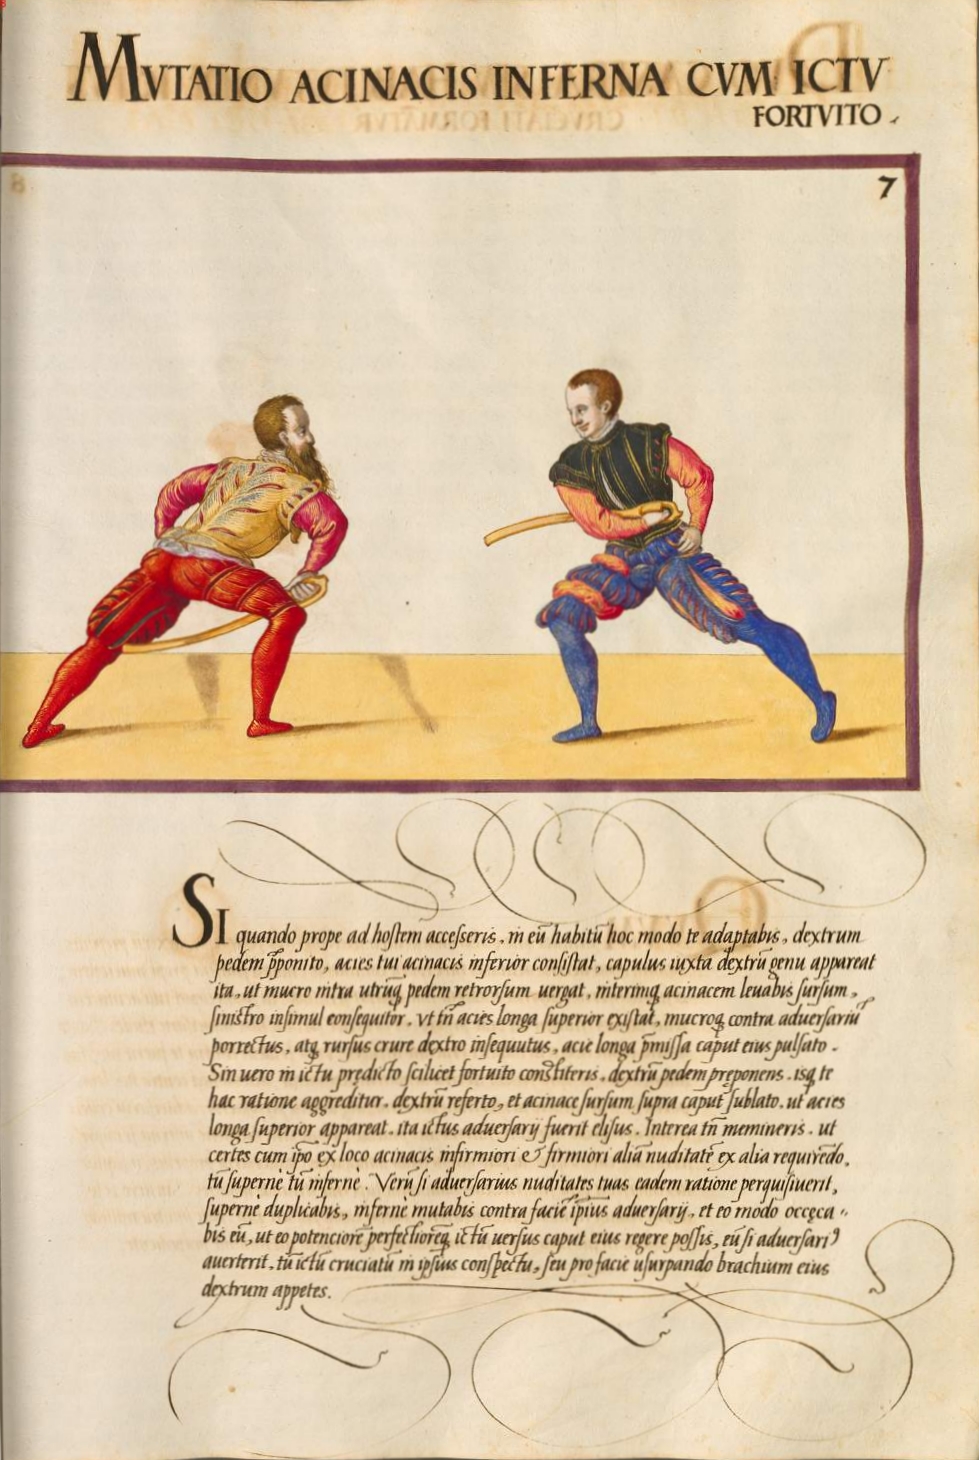 MVTATIO ACINACIS INFERNA CVM ICTV
FORTVITO.
7
SI quando prope ad hostem accesseris, in eũ habitũ hoc modo te adaptabis, dextrum
pedem p̃ponito, acies tui acinacis inferior consistat, capulus iuxta dextrũ genu appareat
ita, ut mucro intra utruq̃ pedem retrorsum uergat, interimq̃ acinacem leuabis sursum,
sinistro insimul consequitor, vt tñ acies longa superior existat, mucroq̃ contra aduersariũ
porrectus, atq̃ rursus crure dextro insequutus, acie longa p̃missa caput eius pulsato.
Sin uero in ictu prędicto scilicet fortuito constiteris, dextrũ pedem pręponens, isq̃ te
hac ratione aggreditur, dextrũ referto, et acinace sursum supra caput sublato, ut acies
longa superior appareat, ita ictus aduersarij fuerit elisus. Interea tñ memineris, ut
certes cum ip̃o ex loco acinacis infirmiori & firmiori aliã nuditatẽ ex alia requirẽdo,
tũ supernè tũ infernè. Verũ si aduersarius nuditates tuas eadem ratione perquisiuerit,
supernè duplicabis, infernè mutabis contra faciẽ ip̃ius aduersarij, et eo modo occęca„
bis eũ, ut eo potenciorẽ perfectioreq̃ ictũ uersus caput eius regere possis, eũ si aduersariꝰ
auerterit, tũ ictũ cruciatũ in ip̃ius conspectu, seu pro facie usurpando brachium eius
dextrum appetes.